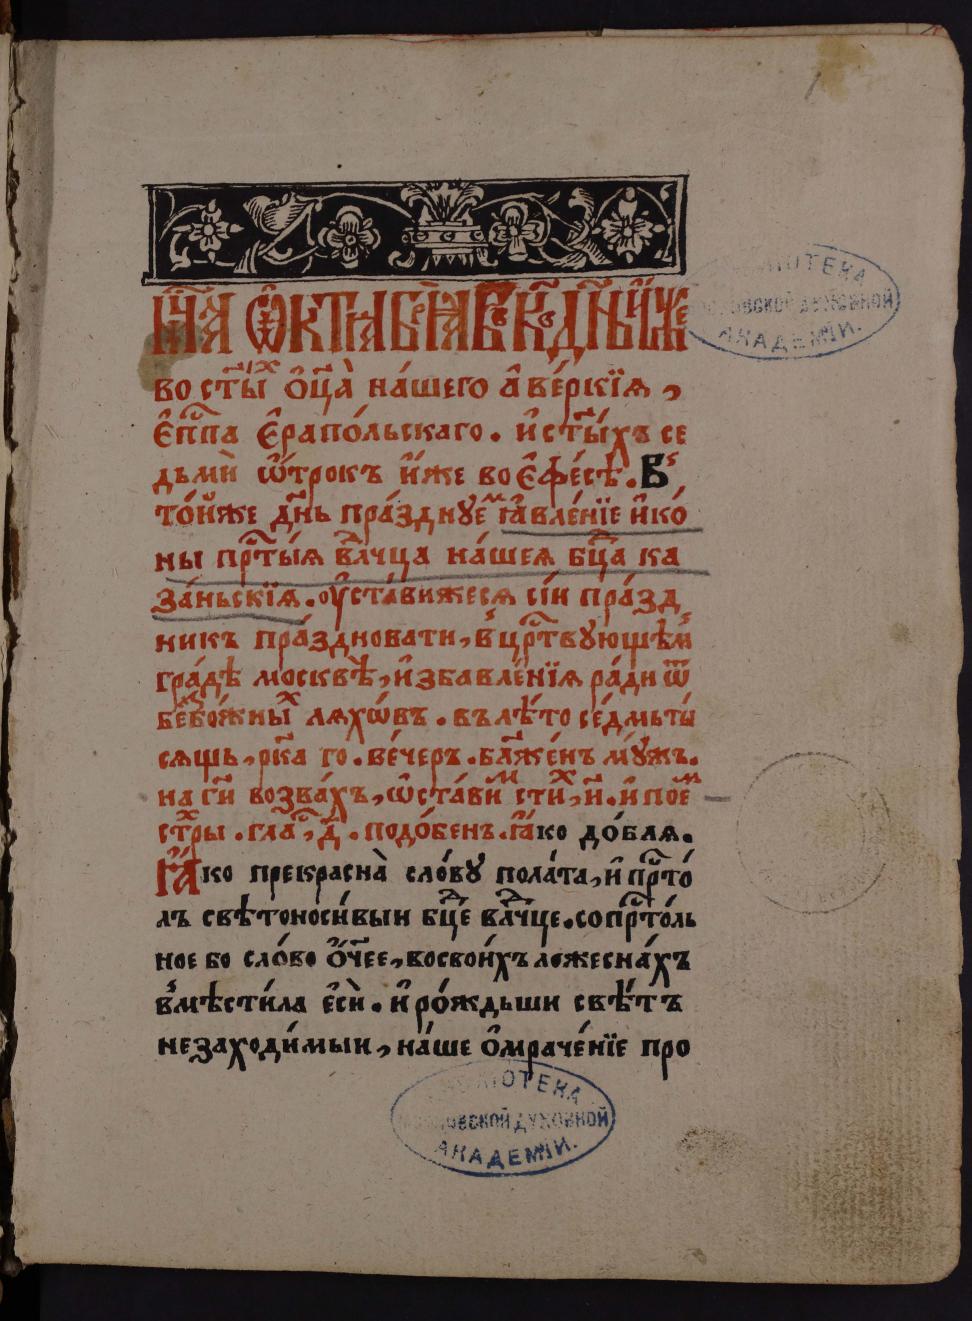 мⷭ҇ца ѻ҆ктѧбрїѧ въ к҃в дн҃ь и҆же
во ст҃ыⷯ ѻ҆ц҃а̀ на́шего а҆ве́ркїѧ,
є҆пⷭ҇па є҆рапо́льскаго. и҆ ст҃ы́хъ се
дьмѝ ѻ҆́трокъ и҆́же во є҆фе́сѣ. Въ
то́йже дн҃ь пра́зднꙋеⷨ ꙗ҆вле́нїе и҆ко́
ны прⷭ҇ты́ѧ влⷣчца на́шеѧ бцⷣа ка
за́ньскїѧ. оу҆ста́вижесѧ сі́и пра́зд
никъ пра́здновати, в црⷭ҇твꙋющеⷨ
гра́дѣ москвѣ̀, и҆збавле́нїѧ ра́ди ѿ
безбо́жныⷯ лѧхѡ́въ. въ лѣ́то се́дмьты
сѧщь, рк҃а го. ве́черъ. бл҃же́нъ мꙋ́жъ.
на гⷭ҇и возва́хъ, ѡ҆ста́виⷨ стиⷯ, и҃. и҆ поеⷨ
стⷯры. глаⷭ, д҃. подо́бенъ. ꙗ҆́ко до́блѧ.
Ꙗ҆́ко прекраснаѧ̀ сло́вꙋ пола́та, и҆ прⷭ҇то́
лъ свѣтоноси́выи бцⷣе влⷣчце. сопрⷭ҇то́ль
ное бо сло́во ѻ҆́чее, во свои́хъ ложесна́хъ
вмѣсти́ла є҆сѝ. и҆ ро́ждьши свѣ́тъ
незаходи́мыи, на́ше ѻ҆мраче́нїе про
БИБЛІОТЕКА
МОСКОВСКОЙ ДУХОВНОЙ
АКАДЕМІИ.
БИБЛІОТЕКА
МОСКОВСКОЙ ДУХОВНОЙ
АКАДЕМІИ.